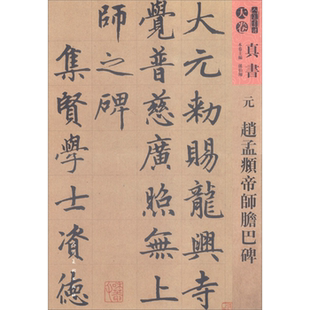 大卷
真書
元
趙孟頫帝師膽巴碑
大元勅賜龍興寺
覺普慈廣照無上
師之碑
集賢學士資德